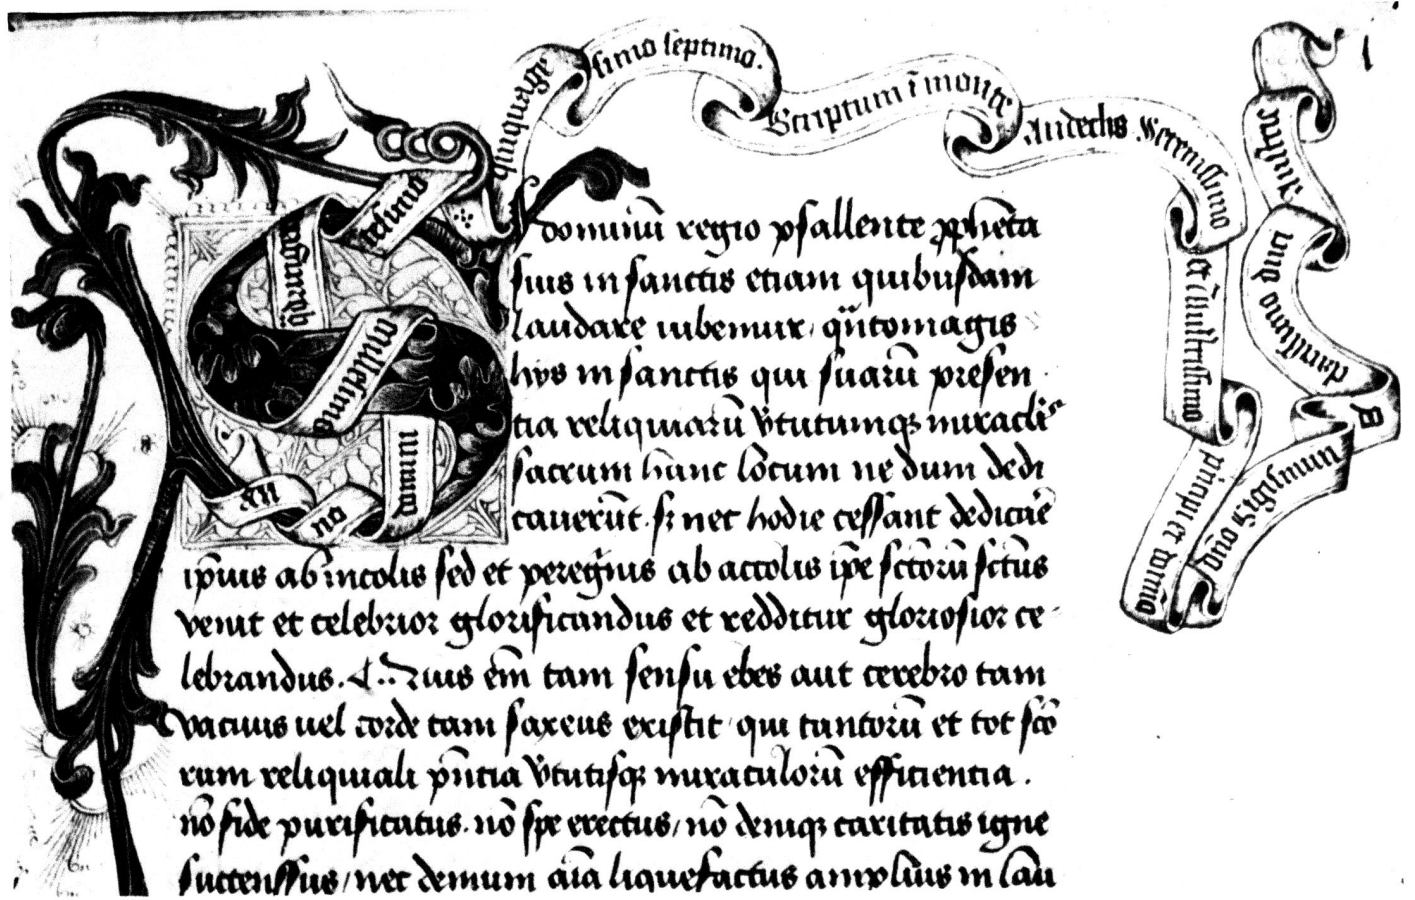 An
no
domini
millesimo
quadringe
tesimo
quinquage
simo septimo.
Scriptum ī monte
Andechs Serenissimo
et illustrissimo
principi et domīo
dn̄o Sigismun
do
duci
Austrie
dominū regio psallente ꝓpheta
suis in sanctis etiam quibusdam
laudare iubemur, qn̄tomagis
hys in sanctis qui suarū presen
tia reliquiarū v̄tutumqꝫ miraclis
sacrum hunc locum ne dum dedi
caverūt. sꝫ nec hodie cessant
ip̄ius ab incolis sed et peregⁱnis ab accolis ip̄e sctōrū sctūs
venit et celebrior glorificandus et redditur gloriosior ce
lebrandus. Quis em̄ tam sensu ebes aut cerebro tam
vacuus vel corde tam saxeus existit, qui tantorū et tot scō
rum reliquiali pn̄tia v̄tutisqꝫ miraculorū efficientia.
nō fide purificatus. nō spe erectus, nō deniqꝫ caritatis igne
succenssus, nec demum aīa liquefactus amplius in lau